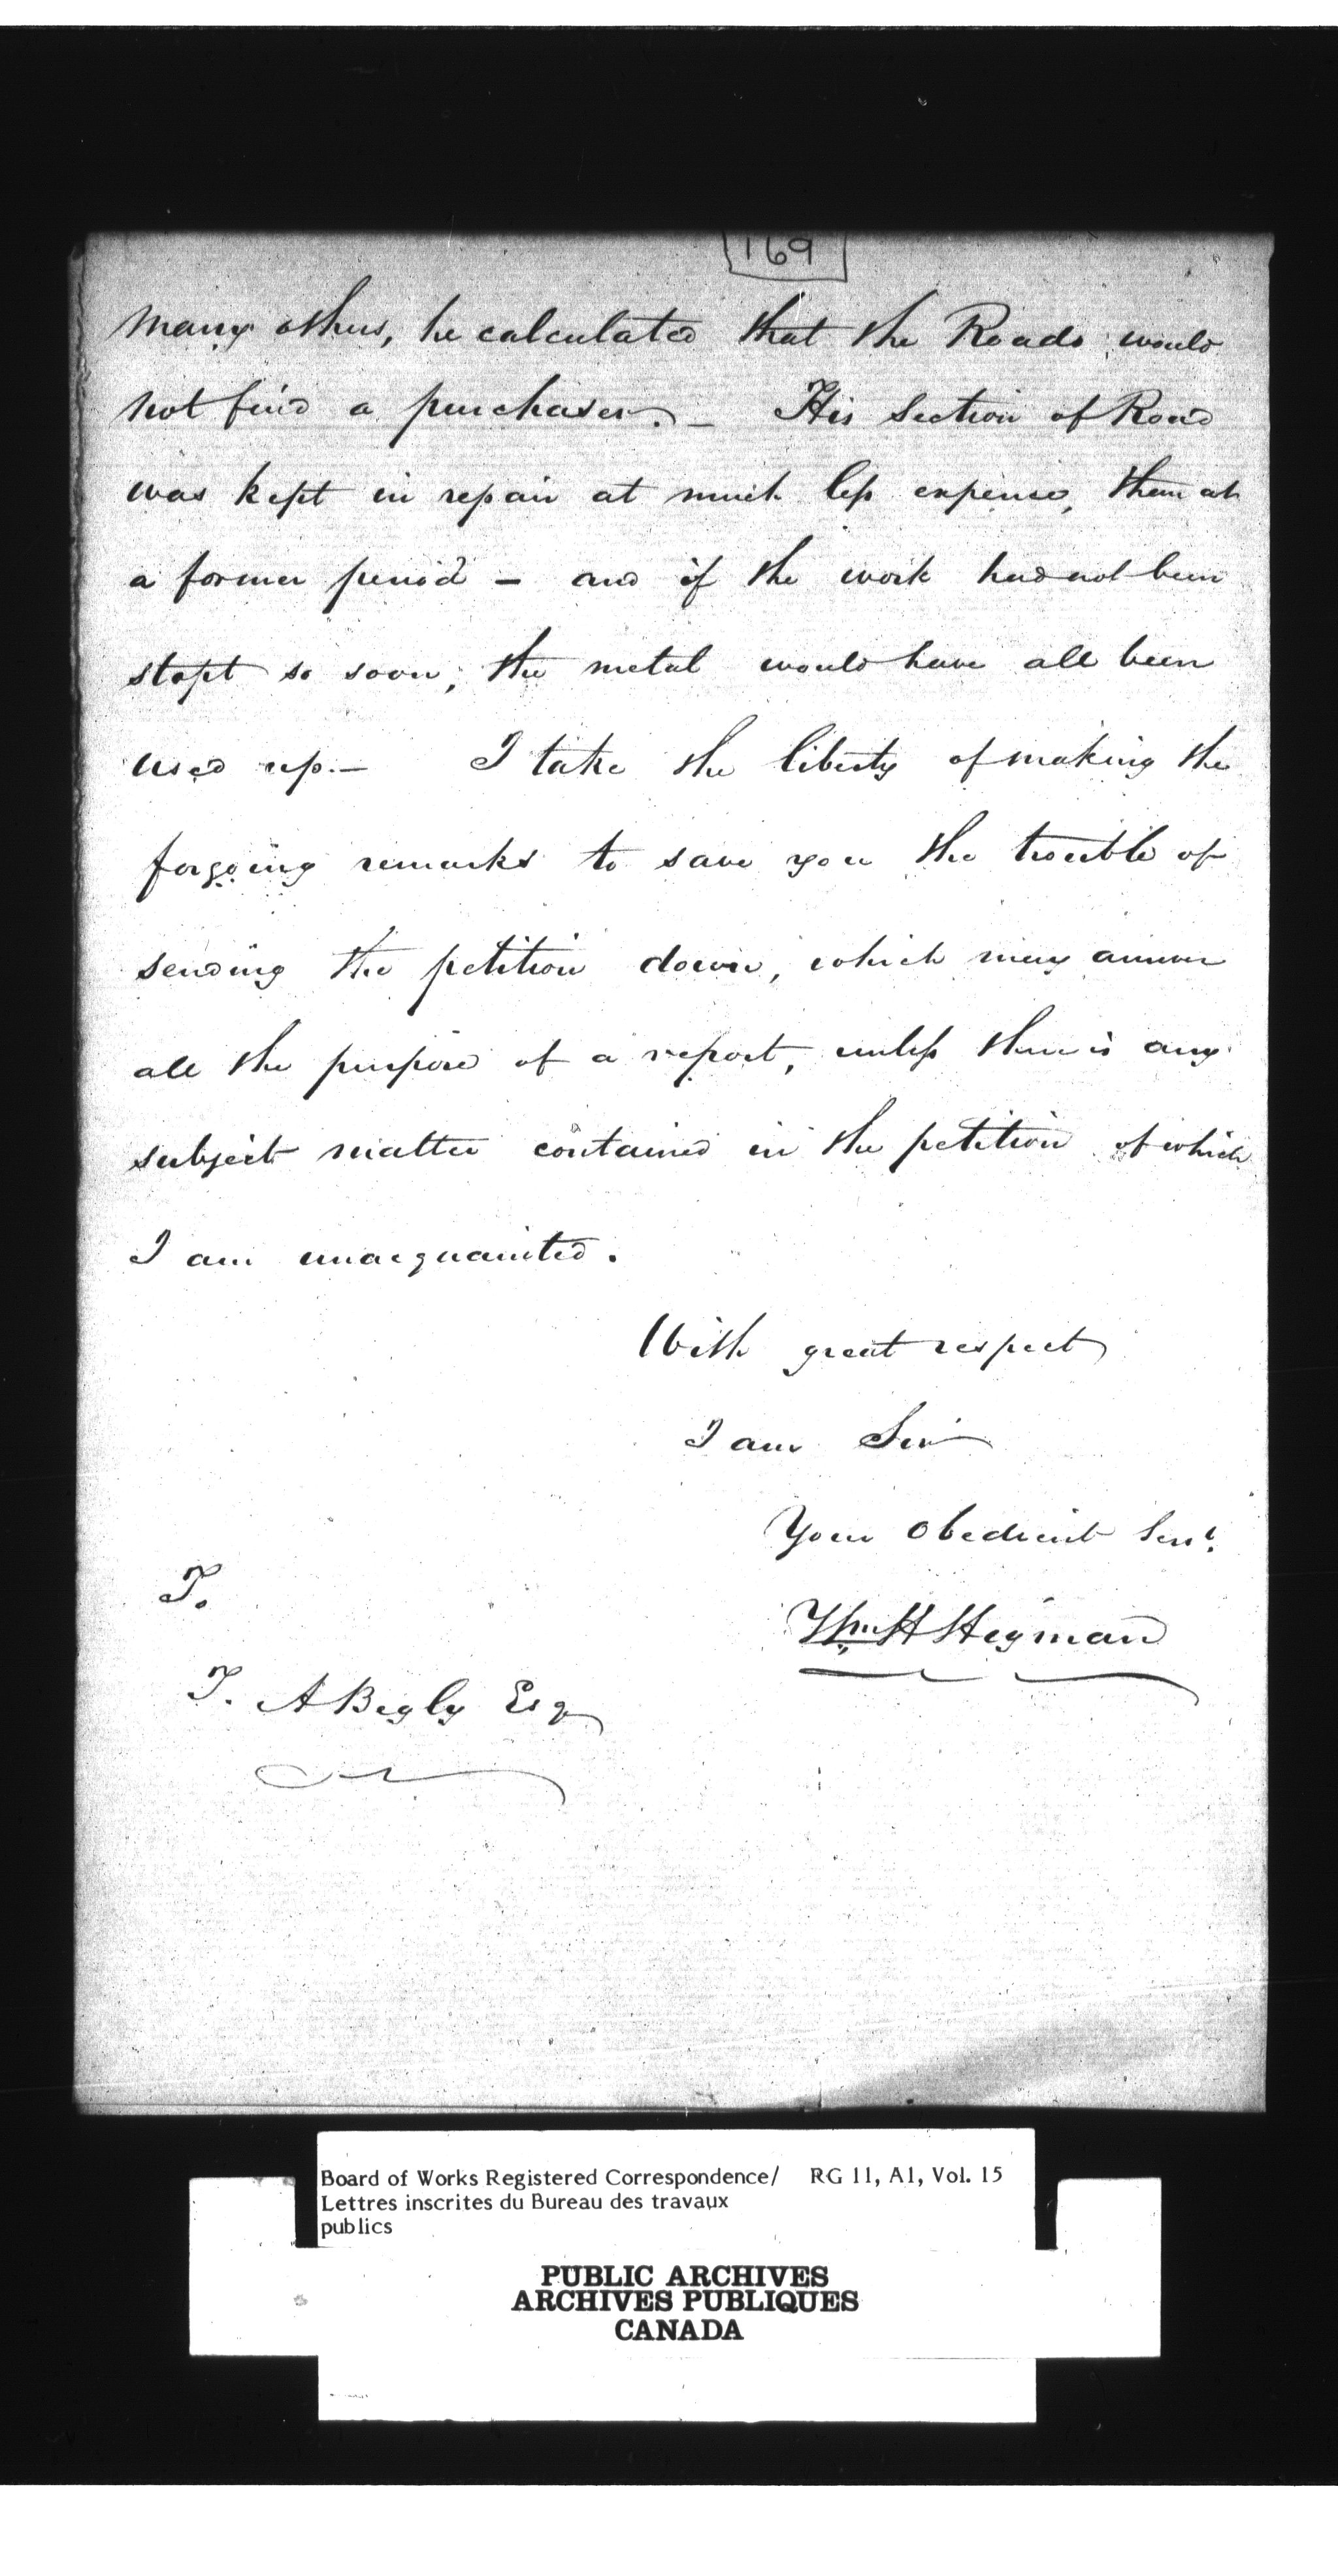 169
many others, he calculated that the Roads would
not find a purchaser. – His Section of Road
was kept in repair at much less expense, than at
a former period – and if the work had not been
stopt so soon, the metal would have all been
used up. – I take the liberty of making the
forgoing remarks to save you the trouble of
sending the petition down, which may answer
all the purpose of a report, unless there is any
subject matter contained in the petition of which
I am unacquainted.
With great respect
I am Sir
Your Obedient Servt.
Wm H Hegman
T.
T. A Begly Esq
Board of Works Registered Correspondence/ RG 11, A1, Vol. 15
Lettres inscrites du Bureau des travaux
publics
PUBLIC ARCHIVES
ARCHIVES PUBLIQUES
CANADA